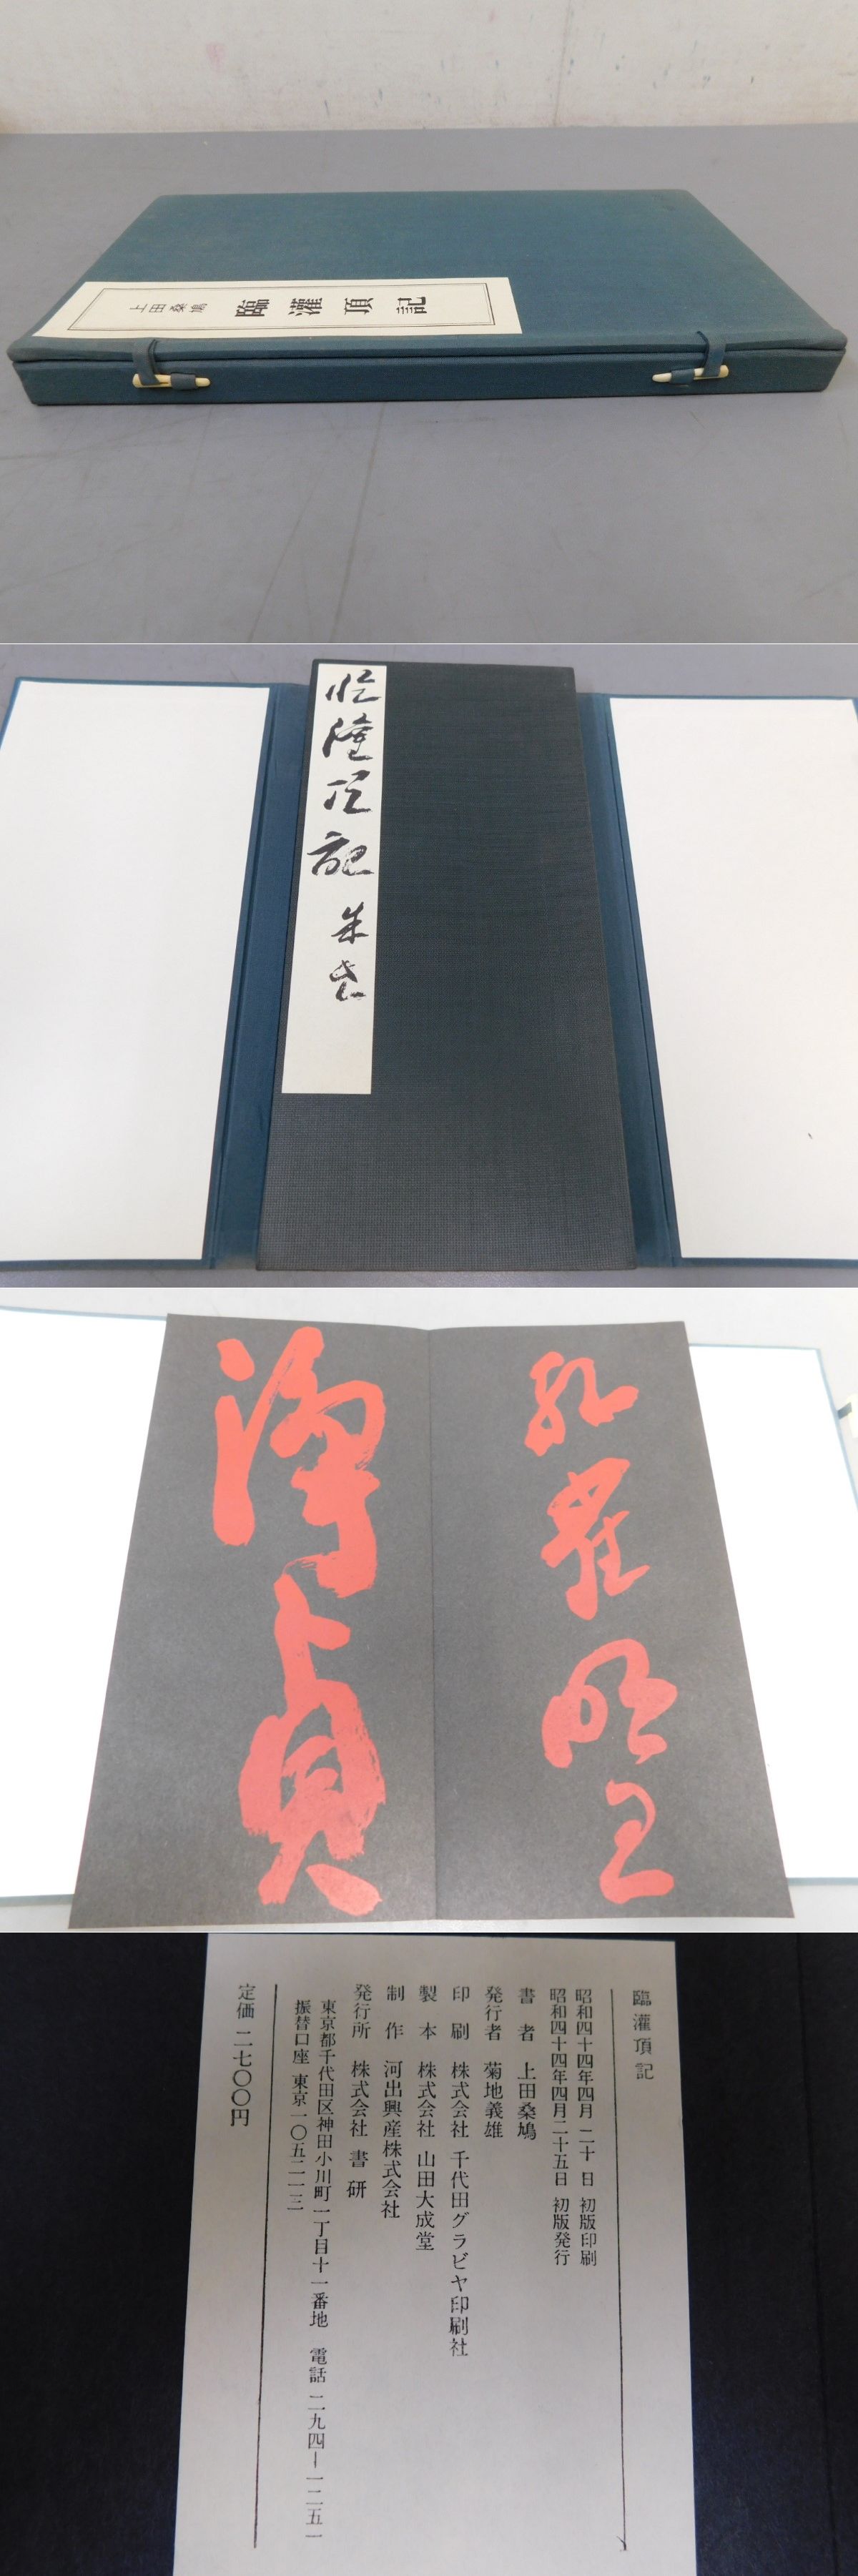 臨灌頂記
上田桑鳩
臨灌頂記
孔雀明王
淨貞
臨灌頂記
昭和四十四年四月二十日 初版印刷
昭和四十四年四月二十五日 初版発行
書者 上田桑鳩
発行者 菊地義雄
印刷 株式会社 千代田グラビヤ印刷社
製本 株式会社 山田大成堂
制作 河出興産株式会社
発行所 株式会社 書研
東京都千代田区神田小川町一丁目十一番地 電話 二九四―一二五一
振替口座 東京一〇五二一三
定価 二七〇〇円